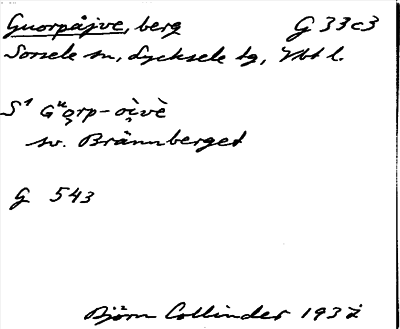 Guorpåjve, berg G 33c3
Sorsele sn, Lycksele tg, Vbt l.
S¹ Gᵘo̭rp-o̭ìvè
sv. Brännberget
G 543
Björn Collinder 1937